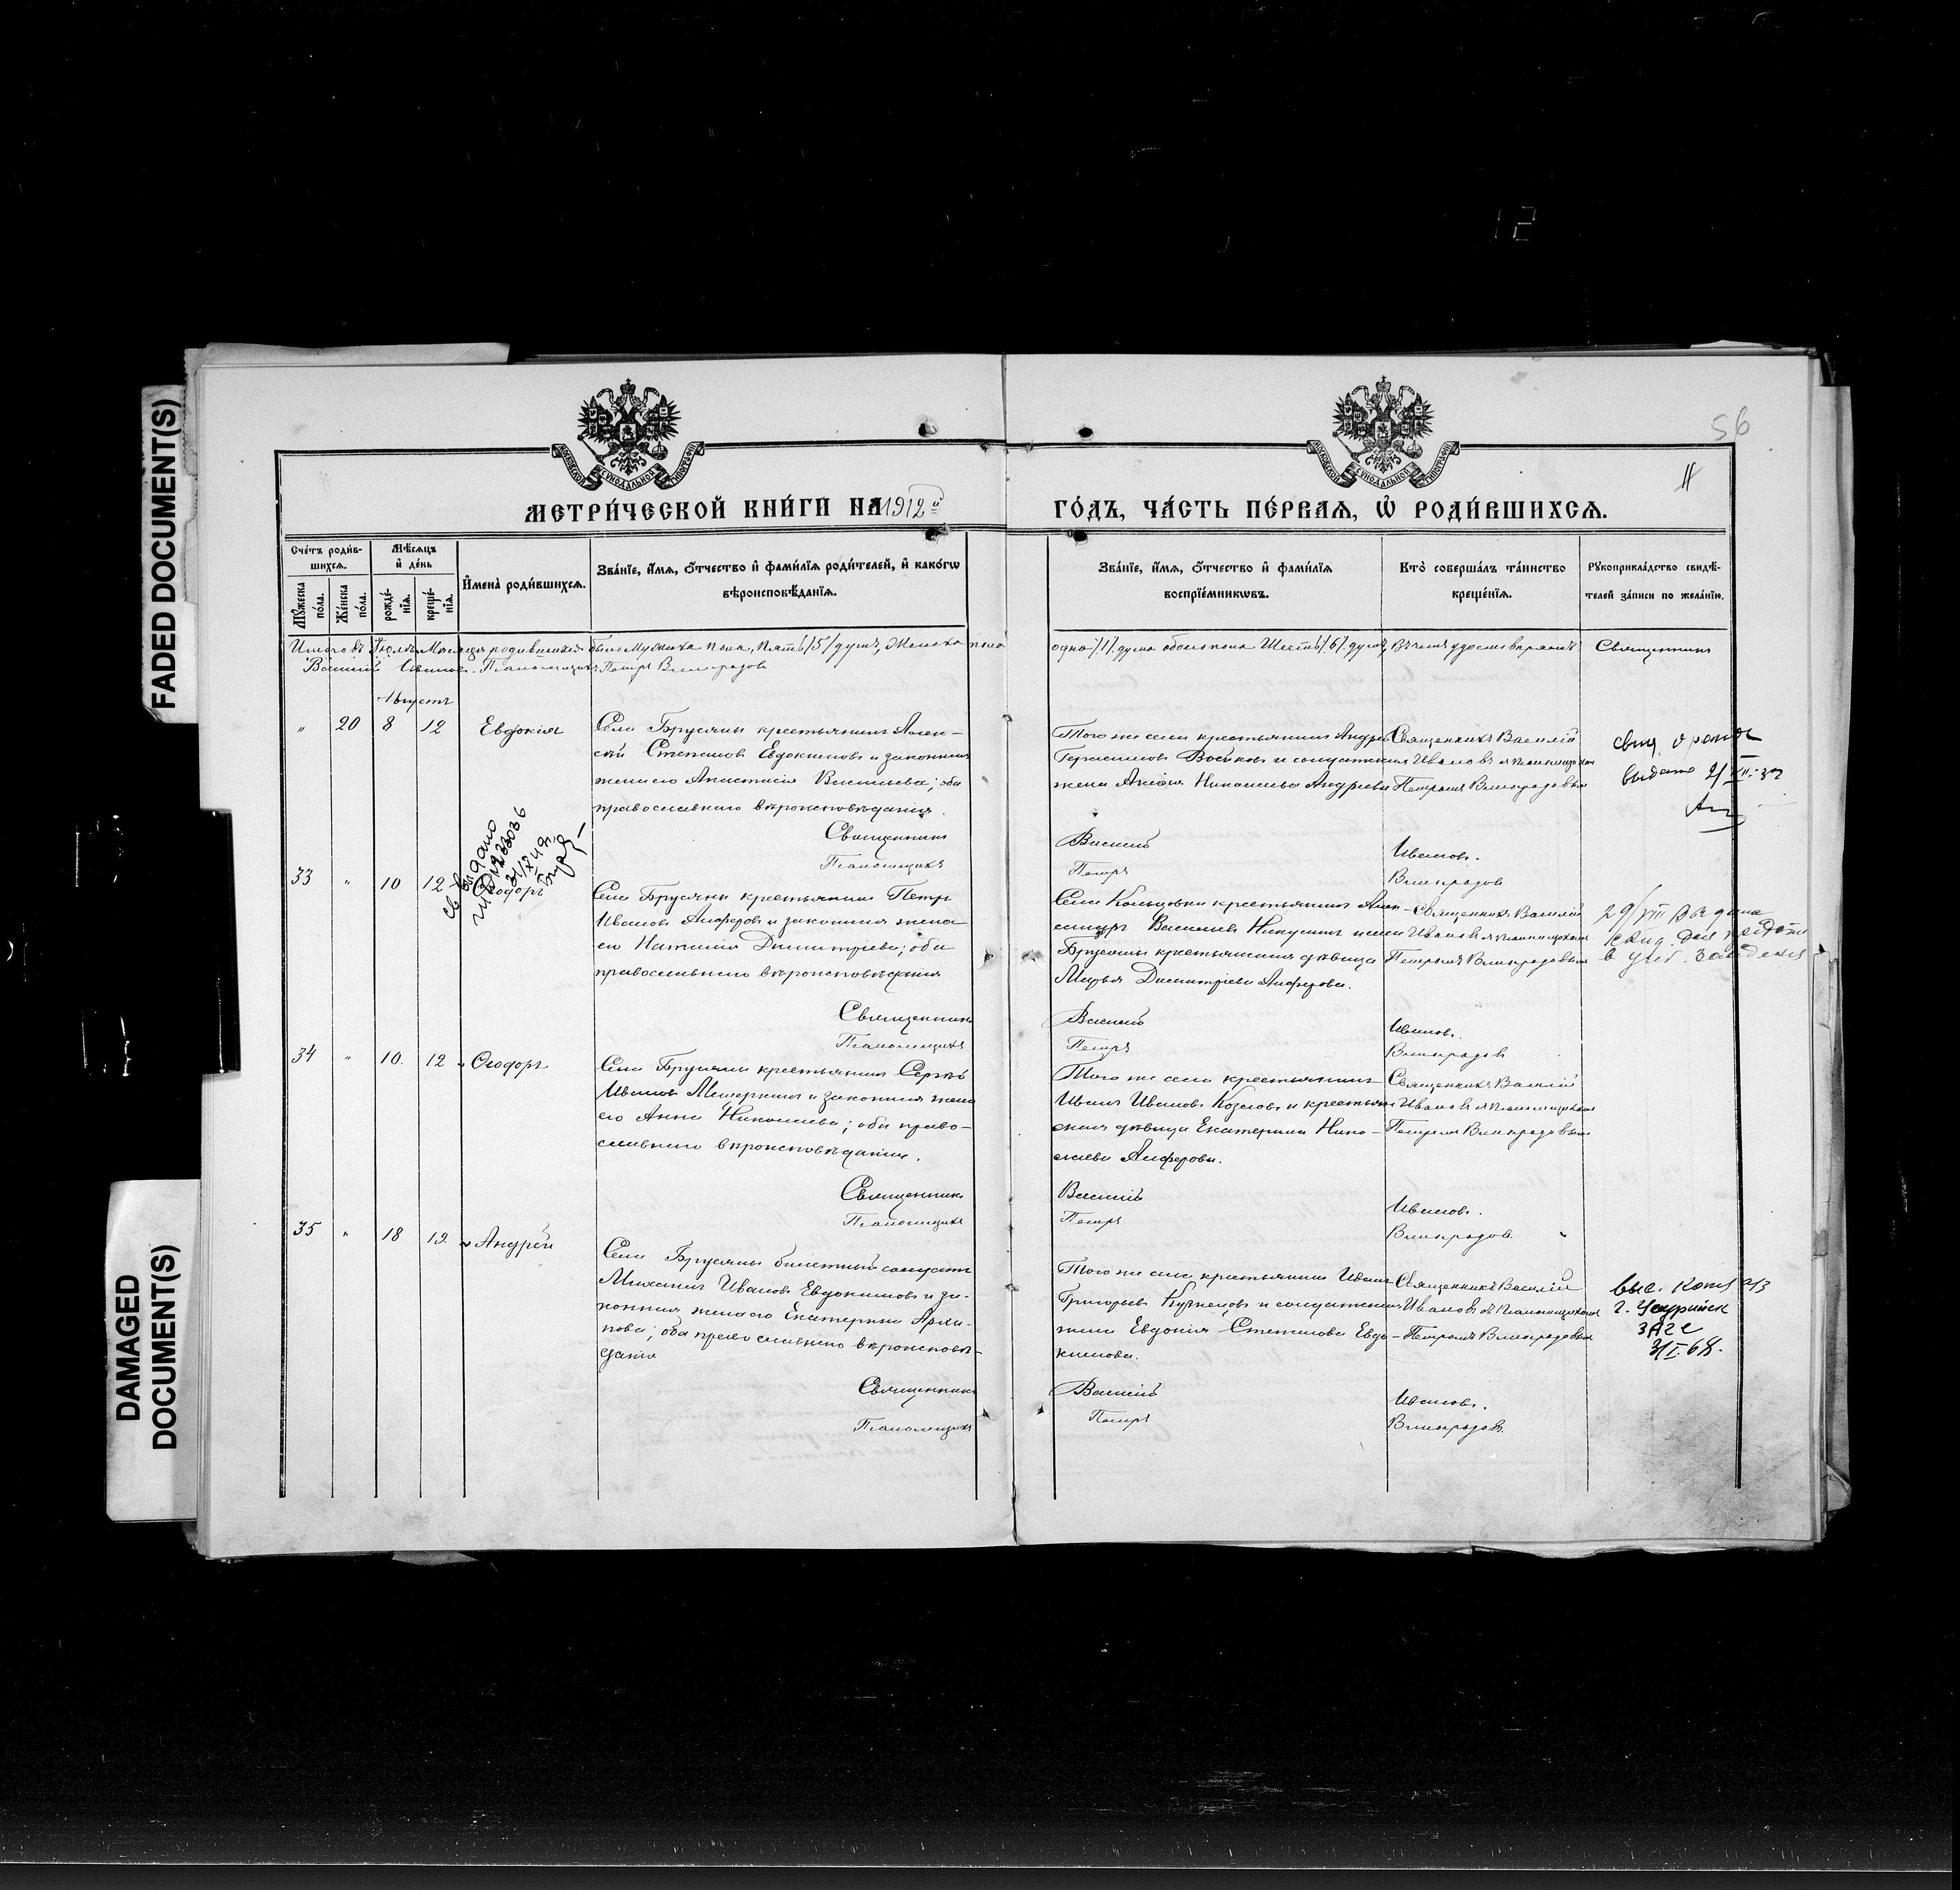 FADED DOCUMENT(S)
DAMAGED
DOCUMENT(S)
12
56
11
МОСКОВСКОЙ СѴНОДАЛЬНОЙ ТИПОГРАФІИ
МОСКОВСКОЙ СѴНОДАЛЬНОЙ ТИПОГРАФІИ
МЕТРИ́ЧЕСКОЙ КНИ́ГИ НА 1912й
ГО́ДЪ, ЧА́СТЬ ПЕ́РВАѦ, Ѡ҆ РОДИ́ВШИХСѦ.
Сче́тъ роди́в-
шихсѧ.
Мꙋ́жеска по́ла.
Же́нска по́ла.
Мѣ́сѧцъ
и҆ де́нь
рожде́-
нїѧ.
креще́-
нїѧ.
И҆мена̀ роди́вшихсѧ.
Зва́нїе, и҆́мѧ, ѻ҆́тчество и҆ фами́лїѧ роди́телей, и҆ како́гѡ
вѣроисповѣ́данїѧ.
Зва́нїе, и҆́мѧ, ѻ҆́тчество и҆ фами́лїѧ
воспрїе́мникѡвъ.
Кто̀ соверша́лъ та́инство
креще́нїѧ.
Рꙋкоприкла́дство свидѣ́-
телей за́писи по жела́нїю.
Итого въ Іюлѣ Мѣсяцѣ родившихся было Мужеска пола, Пять /5/ душъ, Женска пола
одна /1/ душа обоего пола Шесть /6/ душъ, Въ чемъ удостовѣряемъ Священникъ
Василій Ивановъ. Псаломщикъ Петръ Виноградовъ
Августъ
" 20 8 12 Евдокія
Села Брусяны крестьянинъ Алек-
сѣй Степановъ Евдокимовъ и законная
жена его Анастасія Васильева; оба
православнаго вѣроисповѣданія.
Священникъ
Псаломщикъ
Того же села крестьянинъ Андрей
Герасимовъ Войковъ и солдатская
жена Анисія Николаева Андреева
Василій
Петръ
Священникъ Василій
Ивановъ и псаломщикомъ
Петромъ Виноградовымъ
Ивановъ.
Виноградовъ
свид. о рожд
выдано 2/XII-37
св выдано
31/X 49г.
33 " 10 12 Ѳеодоръ
Села Брусяны крестьянинъ Петръ
Ивановъ Алферовъ и законная жена
его Наталія Димитріева; оба
православнаго вѣроисповѣданія
Священникъ
Псаломщикъ
Села Кольцовки крестьянинъ Алек-
сандръ Васильевъ Никулинъ и села
Брусяны крестьянская дѣвица
Марья Димитріева Алферова.
Василій
Петръ
Священникъ Василій
Ивановъ и псаломщикомъ
Петромъ Виноградовымъ
Ивановъ.
Виноградовъ
29/VIII выдана
в учеб. заведения
34 " 10. 12 Ѳеодоръ
Села Брусяны крестьянинъ Сергѣй
Ивановъ Мещеркинъ и законная жена
его Анна Николаева; оба право-
славнаго вѣроисповѣданія.
Священникъ
Псаломщикъ
Того же села крестьянинъ
Иванъ Ивановъ Козловъ и крестьян-
ская дѣвица Екатерина Нико-
лаева Алферова.
Василій
Петръ
Священникъ Василій
Ивановъ и псаломщикомъ
Петромъ Виноградовымъ
Ивановъ.
Виноградовъ.
35 " 18 19. Андрей
Села Брусяны билетный солдатъ
Михаилъ Ивановъ Евдокимовъ и за-
конная жена его Екатерина Архи-
пова; оба православнаго вѣроисповѣ-
данія
Священникъ
Псаломщикъ
Того же села крестьянинъ Иванъ
Григорьевъ Кузнецовъ и солдатская
жена Евдокія Степанова Евдо-
кимова.
Василій
Петръ
Священникъ Василій
Ивановъ и псаломщикомъ
Петромъ Виноградовымъ
Ивановъ.
Виноградовъ.
выс. копия
г. Уссурийск
ЗАГС
3/I.68.